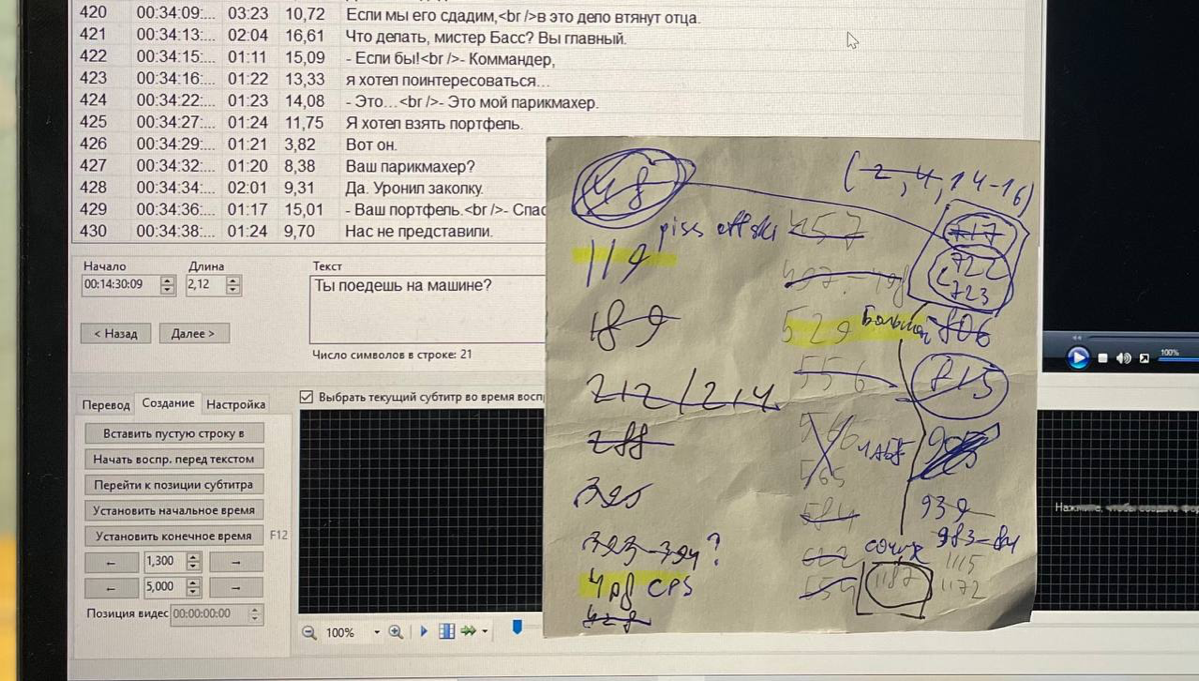 420 00:34:09:... 03:23 10,72 Если мы его сдадим,<br />в это дело втянут отца.
421 00:34:13:... 02:04 16,61 Что делать, мистер Басс? Вы главный.
422 00:34:15:... 01:11 15,09 - Если бы!<br />- Коммандер,
423 00:34:16:... 01:22 13,33 я хотел поинтересоваться...
424 00:34:22:... 01:23 14,08 - Это...<br />- Это мой парикмахер.
425 00:34:27:... 01:24 11,75 Я хотел взять портфель.
426 00:34:29:... 01:21 3,82 Вот он.
427 00:34:32:... 01:20 8,38 Ваш парикмахер?
428 00:34:34:... 02:01 9,31 Да. Уронил заколку.
429 00:34:36:... 01:17 15,01 - Ваш портфель.<br />- Спас
430 00:34:38:... 01:24 9,70 Нас не представили.
Начало Длина Текст
00:14:30:09 2,12 Ты поедешь на машине?
< Назад Далее >
Число символов в строке: 21
Перевод Создание Настройка
Выбрать текущий субтитр во время восп
Вставить пустую строку в
Начать воспр. перед текстом
Перейти к позиции субтитра
Установить начальное время
Установить конечное время F12
← 1,300 →
← 5,000 →
Позиция видес 00:00:00:00
100%
48
(2, 4, 14-16)
119
189
212/214
288
325
393-394?
498 CPS
428
457
529
556
565
584
717
722
723
806
815
905
939
983-84
1115
1187 1172
100%
Нажмите, чтобы создать фор